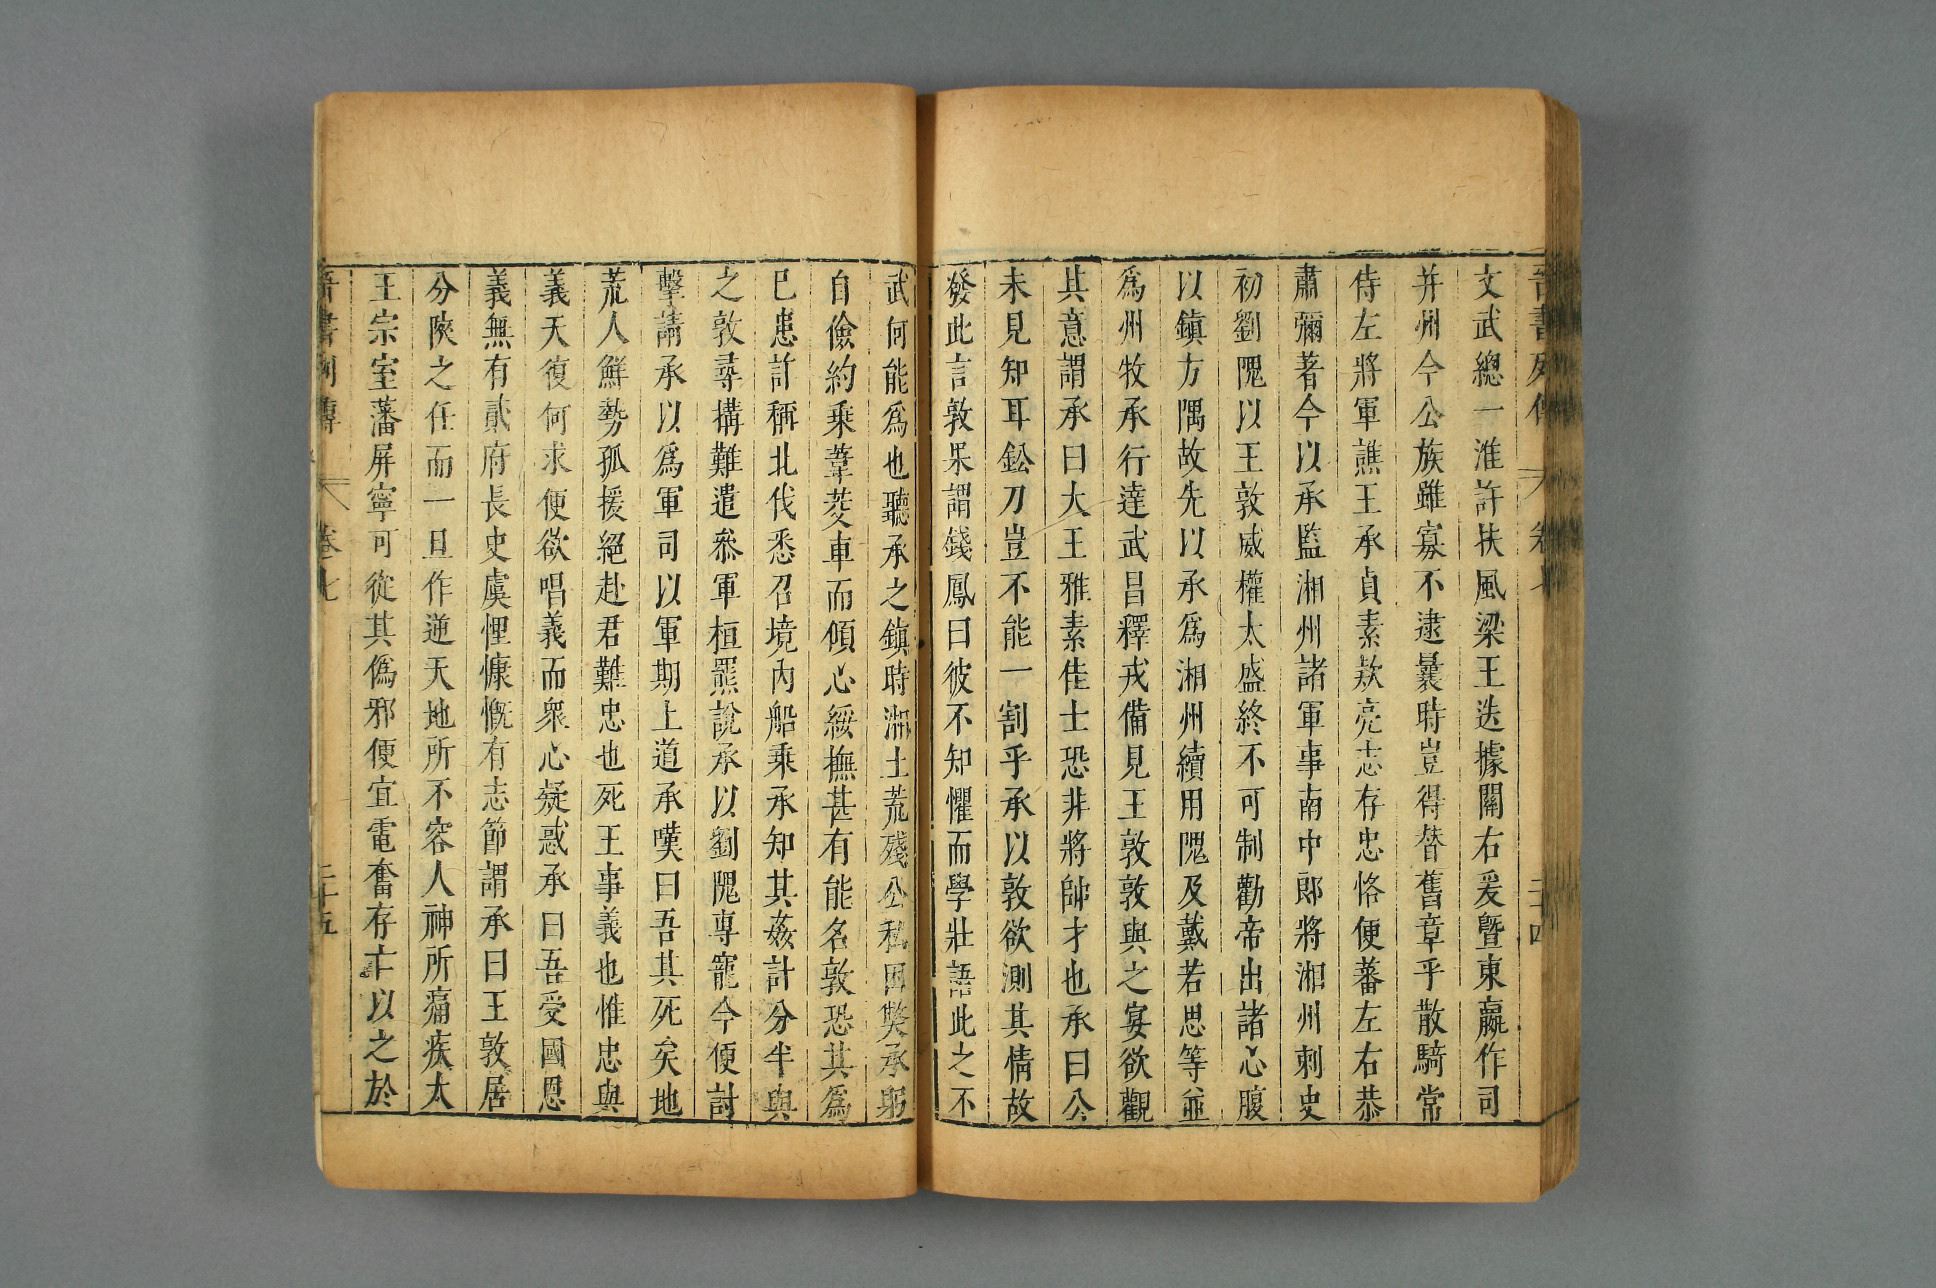 晉書列傳 卷七 二十四
文武總一淮許扶風梁王迭據關右爰曁東嬴作司
并州今公族雖寡不逮曩時豈得替舊章乎散騎常
侍左將軍譙王承貞素款亮志存忠恪便蕃左右恭
肅彌著今以承監湘州諸軍事南中郎將湘州刺史
初劉隗以王敦威權太盛終不可制勸帝出諸心腹
以鎮方隅故先以承爲湘州續用隗及戴若思等並
爲州牧承行達武昌釋戎備見王敦敦與之宴欲觀
其意謂承曰大王雅素佳士恐非將帥才也承曰公
未見知耳鈆刀豈不能一割乎承以敦欲測其情故
發此言敦果謂錢鳳曰彼不知懼而學壯語此之不
武何能爲也聽承之鎮時湘土荒殘公私困獘承躬
自儉約乘葦茭車而傾心綏撫甚有能名敦恐其爲
已患詐稱北伐悉召境內船乘承知其姦計分半與
之敦尋搆難遣叅軍桓羆說承以劉隗專寵今便討
擊請承以爲軍司以軍期上道承嘆曰吾其死矣地
荒人鮮勢孤援絕赴君難忠也死王事義也惟忠與
義夫復何求便欲唱義而衆心疑惑承曰吾受國恩
義無有貳府長史虞悝慷慨有志節謂承曰王敦居
分陝之任而一旦作逆天地所不容人神所痛疾大
王宗室藩屏寧可從其僞邪便宜電奮存亡以之於
晉書列傳 卷七 二十五